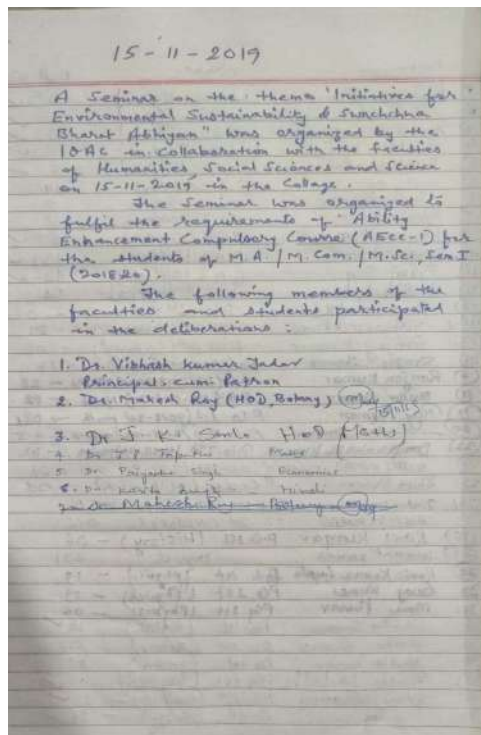 15-11-2019
A Seminar on the theme "Initiatives for
Environmental Sustainability & Swachchha
Bharat Abhiyan" was organized by the
IQAC in collaboration with the faculties
of Humanities, Social Sciences and Science
on 15-11-2019 in the College.
The Seminar was organized to
fulfil the requirements of "Ability
Enhancement Compulsory Course (AECC-1) for
the students of M.A./M.Com./M.Sc., Sem I
(2018-20).
The following members of the
faculties and students participated
in the deliberations:
1. Dr. Vibhash Kumar Yadav
Principal-cum-Patron
2. Dr. Mahesh Roy (HOD, Botany)
3. Dr J. K. HOD
4. Dr J P
5. Dr. Priyanka Singh Economics
6. Dr Kavita Singh Hindi
Dr. Mahesh Roy Botany